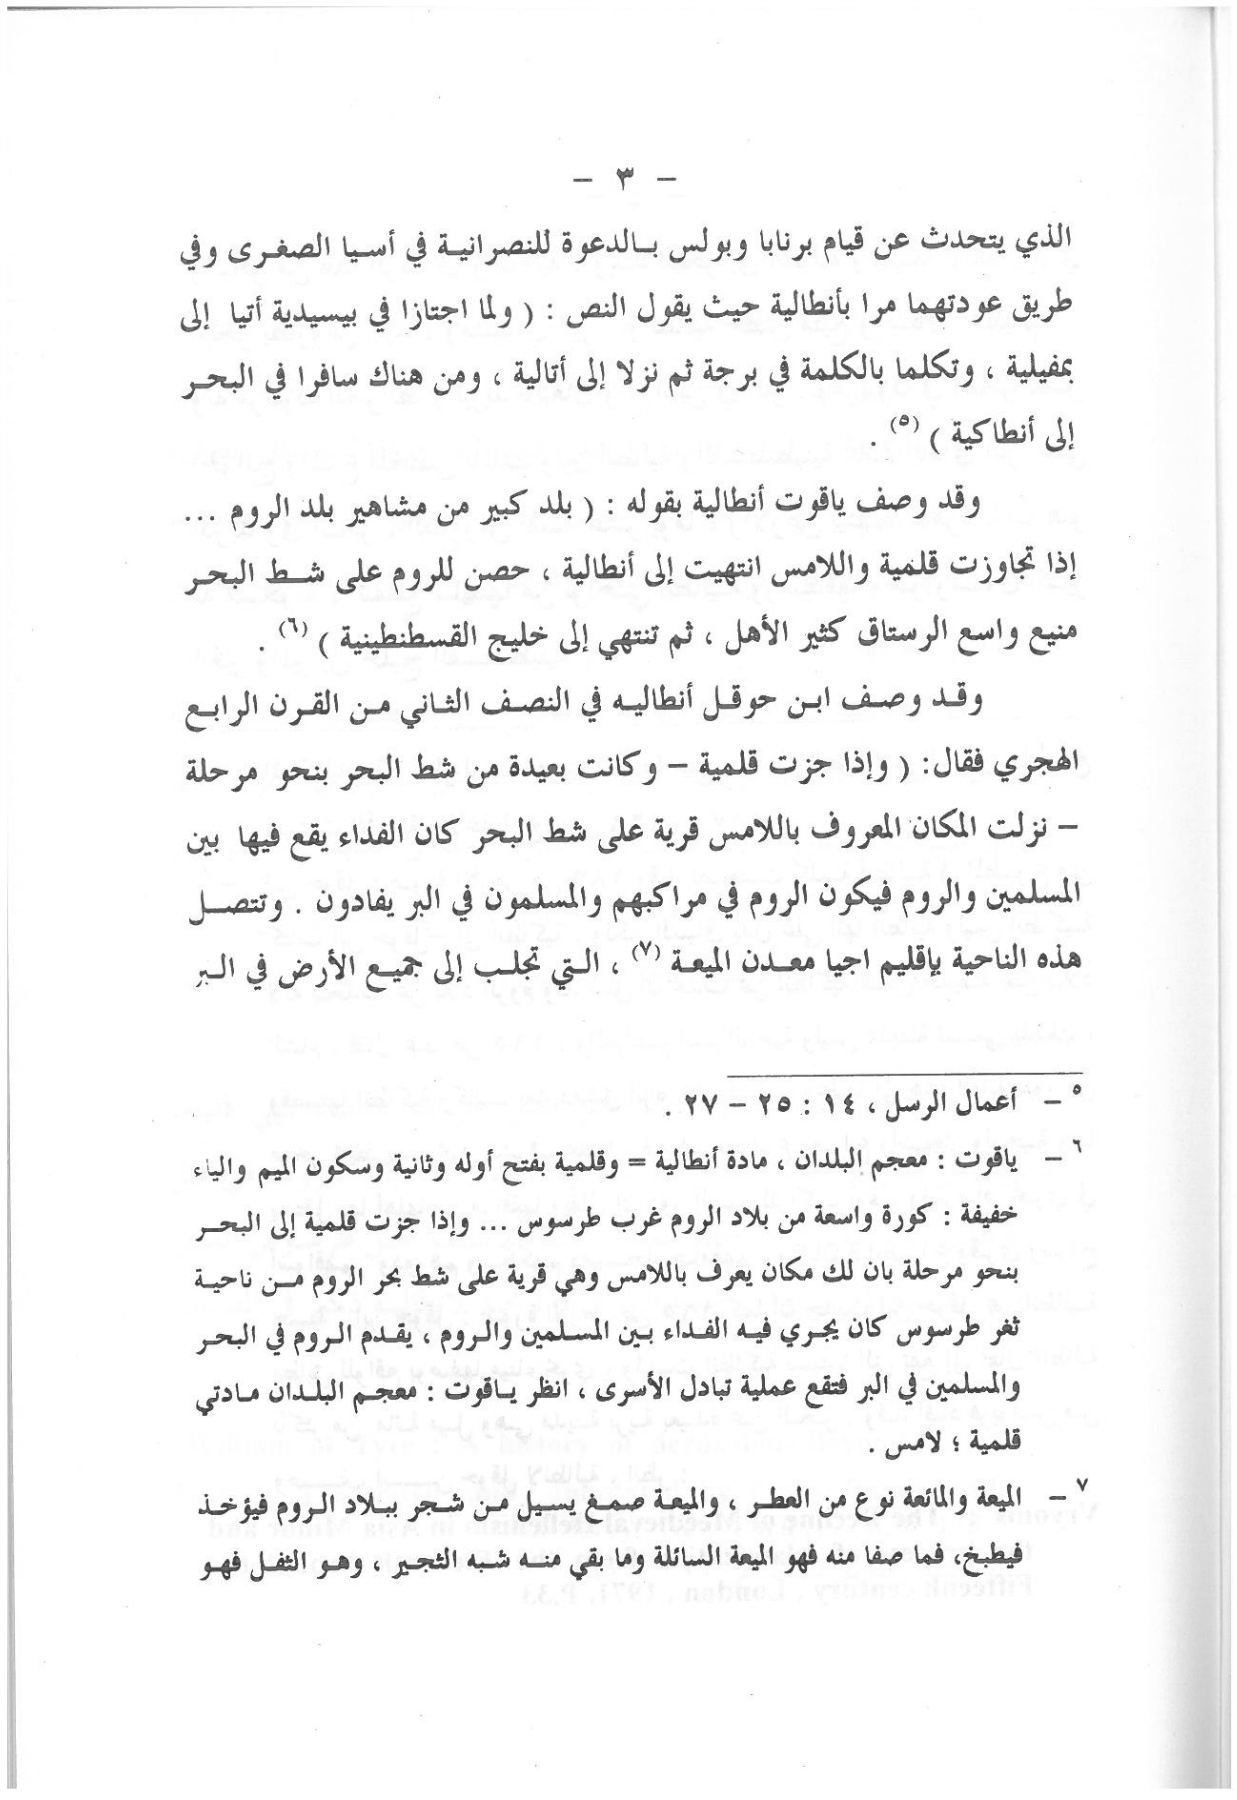 - ٣ -
الذي يتحدث عن قيام برنابا وبولس بالدعوة للنصرانية في أسيا الصغرى وفي
طريق عودتهما مرا بأنطالية حيث يقول النص : ( ولما اجتازا في بيسيدية أتيا إلى
بمفيلية ، وتكلما بالكلمة في برجة ثم نزلا إلى أتالية ، ومن هناك سافرا في البحر
إلى أنطاكية ) (٥) .
وقد وصف ياقوت أنطالية بقوله : ( بلد كبير من مشاهير بلد الروم ...
إذا تجاوزت قلمية واللامس انتهيت إلى أنطالية ، حصن للروم على شط البحر
منيع واسع الرستاق كثير الأهل ، ثم تنتهي إلى خليج القسطنطينية ) (٦) .
وقد وصف ابن حوقل أنطاليه في النصف الثاني من القرن الرابع
الهجري فقال: ( وإذا جزت قلمية – وكانت بعيدة من شط البحر بنحو مرحلة
– نزلت المكان المعروف باللامس قرية على شط البحر كان الفداء يقع فيها بين
المسلمين والروم فيكون الروم في مراكبهم والمسلمون في البر يفادون . وتتصل
هذه الناحية بإقليم اجيا معدن الميعة (٧) ، التي تجلب إلى جميع الأرض في البر
٥ – أعمال الرسل ، ١٤ : ٢٥ – ٢٧ .
٦ – ياقوت : معجم البلدان ، مادة أنطالية = وقلمية بفتح أوله وثانية وسكون الميم والياء
خفيفة : كورة واسعة من بلاد الروم غرب طرسوس ... وإذا جزت قلمية إلى البحر
بنحو مرحلة بان لك مكان يعرف باللامس وهي قرية على شط بحر الروم من ناحية
ثغر طرسوس كان يجري فيه الفداء بين المسلمين والروم ، يقدم الروم في البحر
والمسلمين في البر فتقع عملية تبادل الأسرى ، انظر ياقوت : معجم البلدان مادتي
قلمية ؛ لامس .
٧ – الميعة والمائعة نوع من العطر ، والميعة صمغ يسيل من شجر ببلاد الروم فيؤخذ
فيطبخ، فما صفا منه فهو الميعة السائلة وما بقي منه شبه الثجير ، وهو الثفل فهو